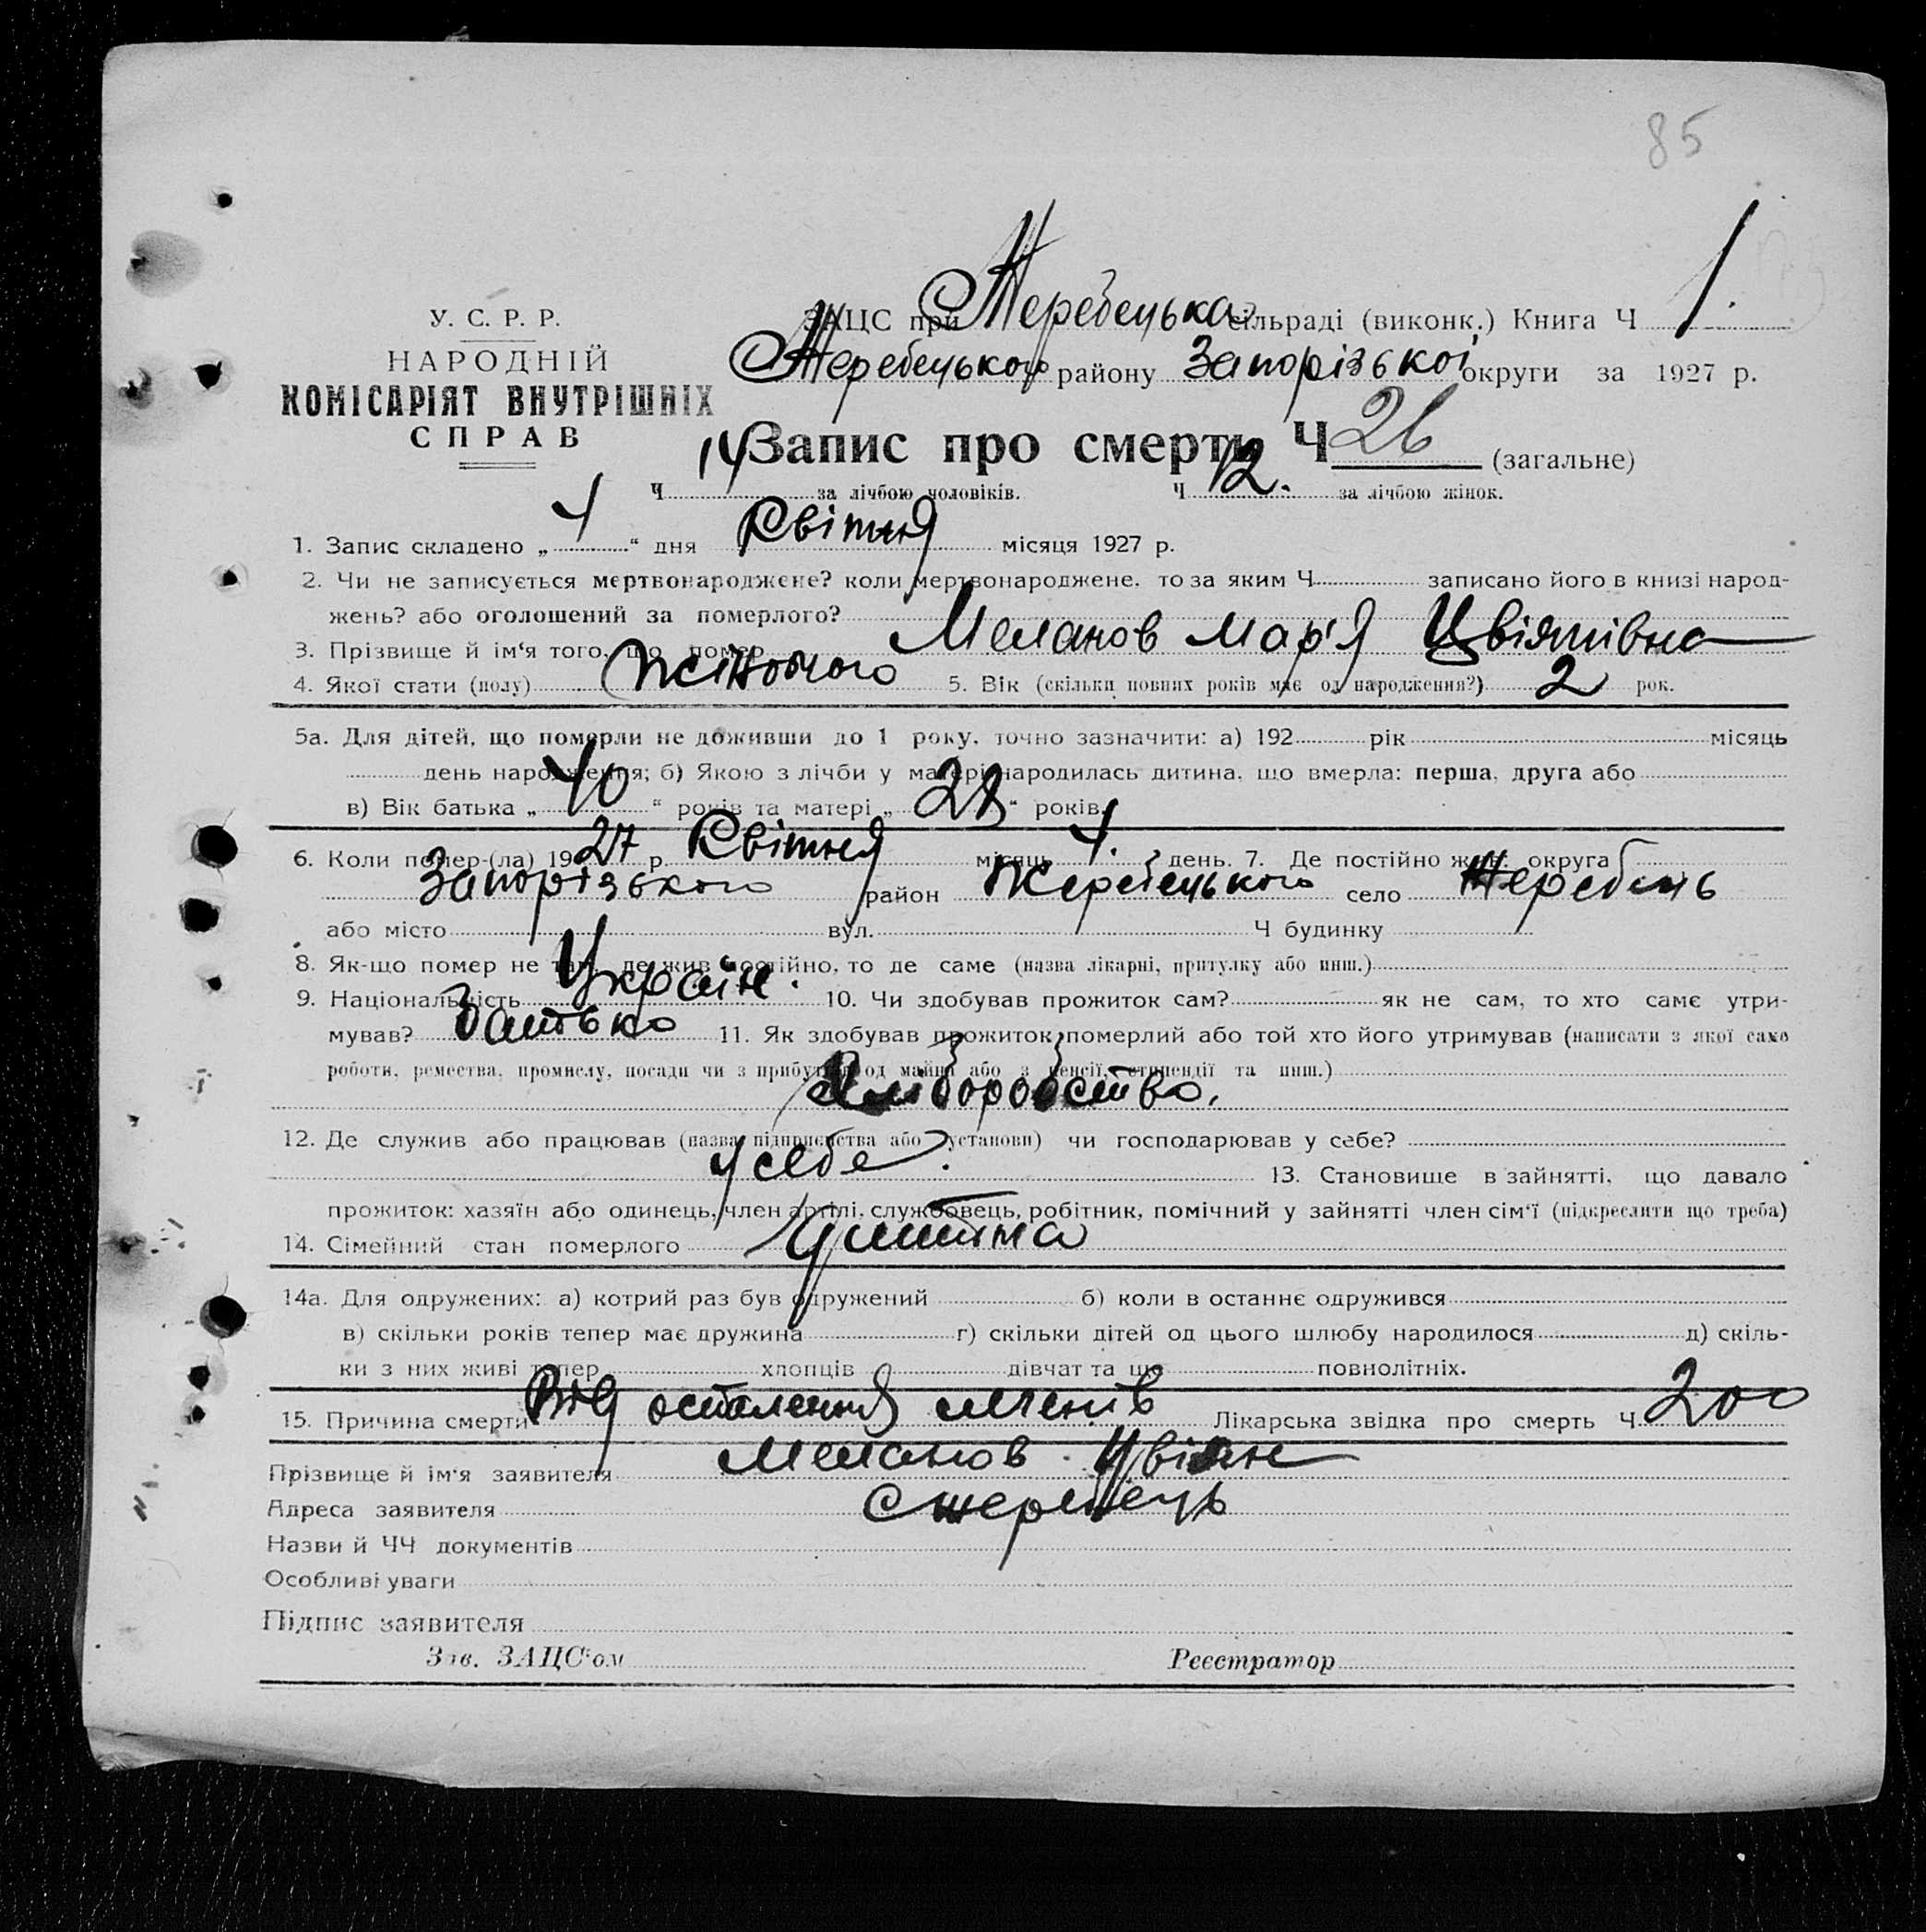 85
У. С. Р. Р.
НАРОДНІЙ
КОМІСАРІЯТ ВНУТРІШНІХ
СПРАВ
ЗАЦС при Жеребецька сільраді (виконк.) Книга Ч 1.
Жеребецького району Запорізької округи за 1927 р.
Запис про смерть Ч 26 (загальне)
Ч 14 за лічбою чоловіків. Ч 12. за лічбою жінок.
1. Запис складено „ 4 “ дня Квітня місяця 1927 р.
2. Чи не записується мертвонароджене? коли мертвонароджене, то за яким Ч записано його в книзі народ-
жень? або оголошений за померлого?
3. Прізвище й ім'я того, що помер Меланов Мар'я Цвіянівна
4. Якої стати (полу) Жіночого 5. Вік (скільки повних років має од народження?) 2 рок.
5а. Для дітей, що померли не доживши до 1 року, точно зазначити: а) 192 рік місяць
день народження; б) Якою з лічби у матері народилась дитина, що вмерла: перша, друга або
в) Вік батька „ 40 “ років та матері „ 28 “ років.
6. Коли помер-(ла) 1927 р. Квітня місяць 4. день. 7. Де постійно жив: округа
Запорізького район Жеребецького село Жеребець
або місто вул. Ч будинку
8. Як-що помер не там, де жив постійно, то де саме (назва лікарні, притулку або инш.)
9. Національність Україн. 10. Чи здобував прожиток сам? як не сам, то хто саме утри-
мував? Батько 11. Як здобував прожиток померлий або той хто його утримував (написати з якої саме
роботи, ремества, промислу, посади чи з прибутків од майна або з пенсії, стипендії та инш.)
Хліборобство.
12. Де служив або працював (назва підприємства або установи) чи господарював у себе?
У себе. 13. Становище в зайнятті, що давало
прожиток: хазяїн або одинець, член артілі, службовець, робітник, помічний у зайнятті член сім'ї (підкреслити що треба)
14. Сімейний стан померлого Дитина
14а. Для одружених: а) котрий раз був одружений б) коли в останнє одружився
в) скільки років тепер має дружина г) скільки дітей од цього шлюбу народилося д) скіль-
ки з них живі тепер хлопців дівчат та ще повнолітніх.
15. Причина смерти Від осталення легенів Лікарська звідка про смерть Ч 200
Прізвище й ім'я заявителя Меланов Цвіян
Адреса заявителя С Жеребець
Назви й ЧЧ документів
Особливі уваги
Підпис заявителя
Зав. ЗАЦС'ом Реєстратор